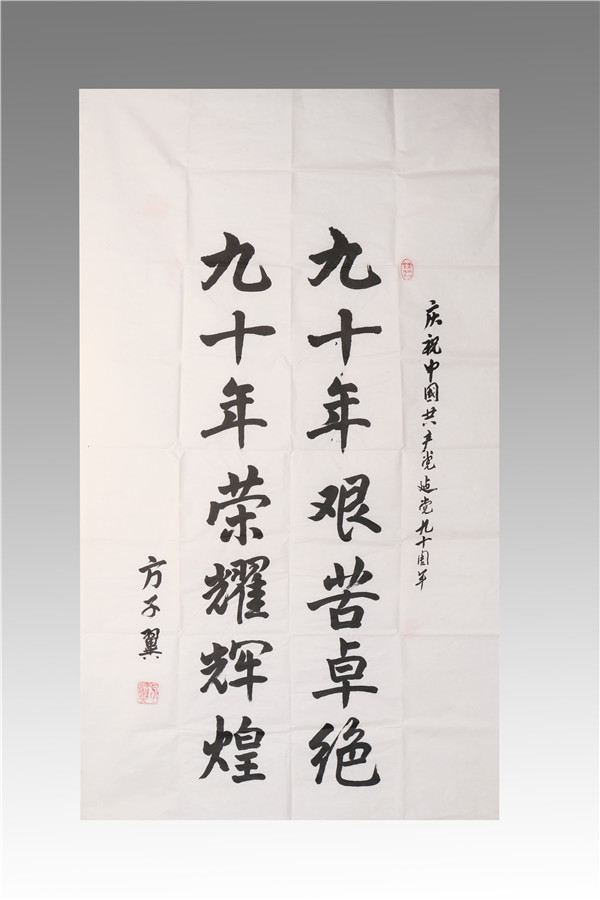 庆祝中国共产党建党九十周年
九十年艰苦卓绝
九十年荣耀辉煌
方子翼